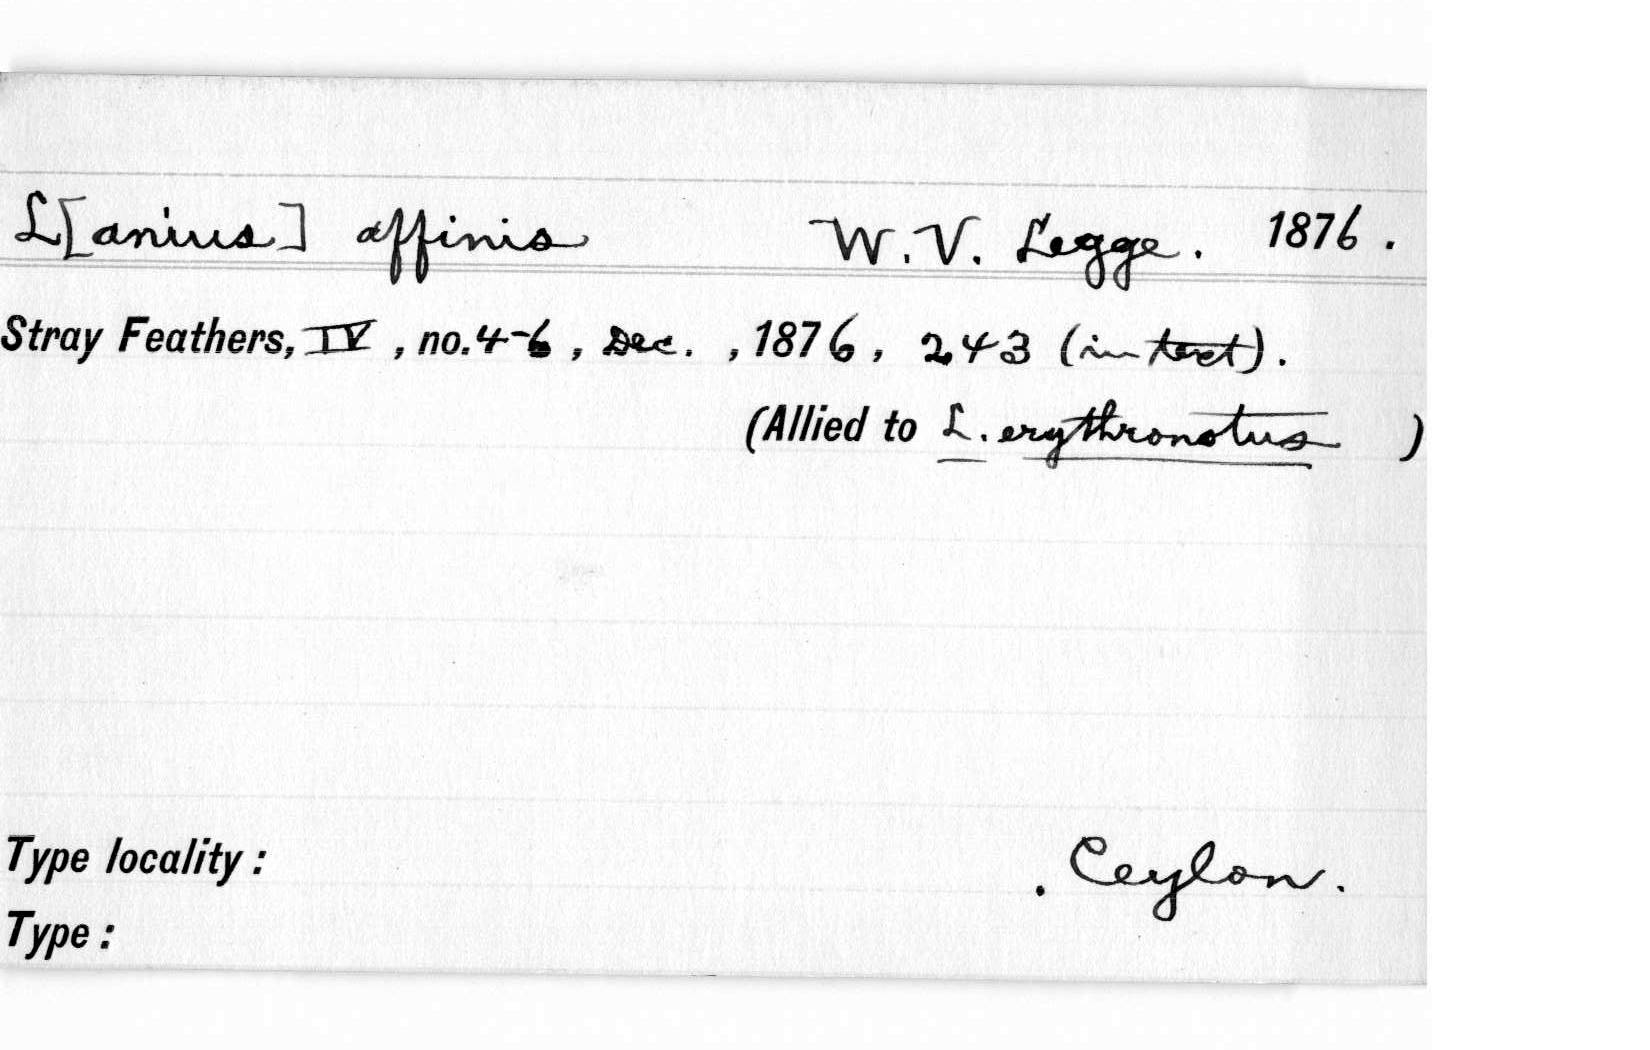 L[anius] affinis W. V. Legge. 1876.
Stray Feathers, IV, no. 4-6, Dec., 1876, 243 (in text).
(Allied to L. erythronotus )
Type locality: . Ceylon.
Type: